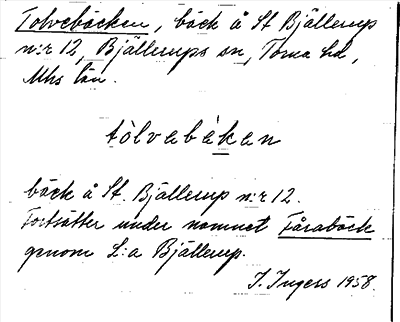 Tolvebäcken, bäck å St Bjällerup
n:r 12, Bjällerups sn, Torna hd,
Mhs län.
tòlvebɛ́kən
bäck å St. Bjällerup n:r 12.
Fortsätter under namnet Fårabäck
genom L:a Bjällerup.
I. Ingers 1958.